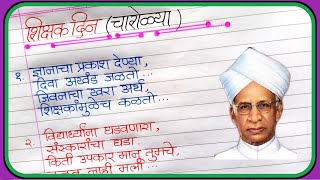 शिक्षक दिन (चारोळ्या)
१. ज्ञानाचा प्रकाश देण्या,
दिवा अखंड जळतो...
जिवनाचा खरा अर्थ,
शिक्षकांमुळेच कळतो...
२. विद्यार्थ्यांना घडवणारा,
संस्कारांचा घडा.
किती उपकार मानू तुमचे,